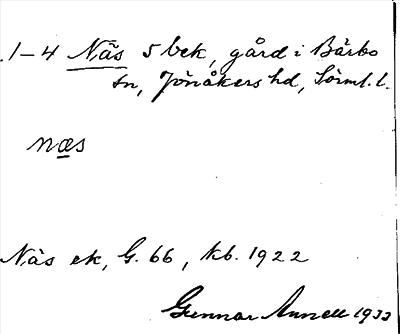 1-4 Näs 5 bek, gård i Bärbo
sn, Jönåkers hd, Sörml. l.
næs
Näs ek, G. 66, kb. 1922
Gunnar Annell 1933